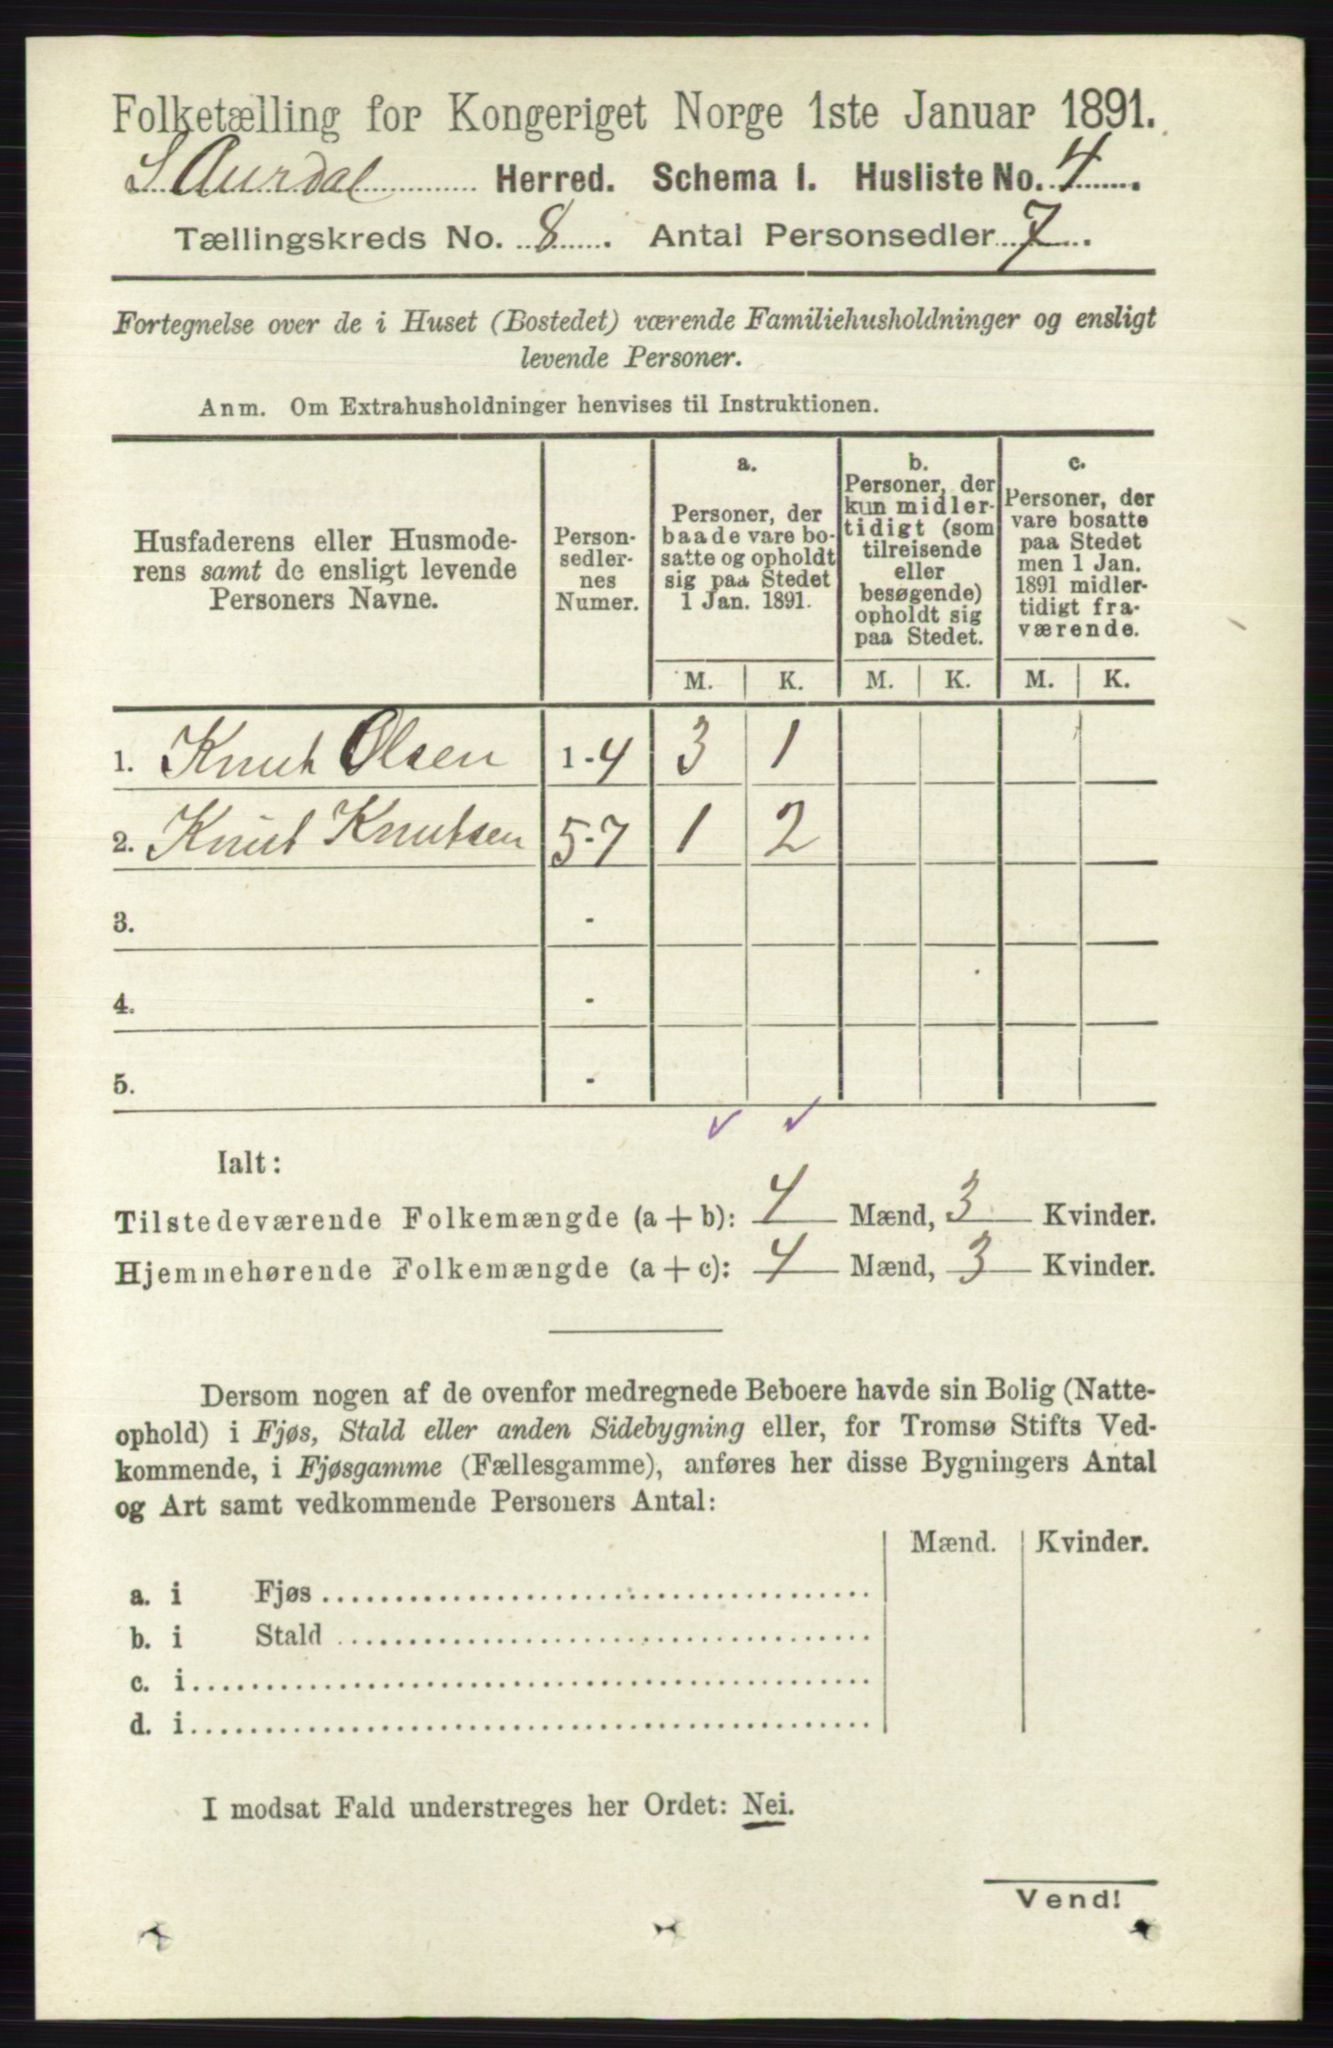 Folketælling for Kongeriget Norge 1ste Januar 1891.
S Aurdal Herred. Schema I. Husliste No. 4.
Tællingskreds No. 8. Antal Personsedler 7.
Fortegnelse over de i Huset (Bostedet) værende Familiehusholdninger og ensligt
levende Personer.
Anm. Om Extrahusholdninger henvises til Instruktionen.
Husfaderens eller Husmode-
rens samt de ensligt levende
Personers Navne.
Person-
sedler-
nes
Numer.
a.
Personer, der
baade vare bo-
satte og opholdt
sig paa Stedet
1 Jan. 1891.
b.
Personer, der
kun midler-
tidigt (som
tilreisende
eller
besøgende)
opholdt sig
paa Stedet.
c.
Personer, der
vare bosatte
paa Stedet
men 1 Jan.
1891 midler-
tidigt fra-
værende.
M. K. M. K. M. K.
1. Knut Olsen 1-4 3 1
2. Knut Knutsen 5-7 1 2
3. -
4. -
5. -
Ialt:
Tilstedeværende Folkemængde (a + b): 4 Mænd, 3 Kvinder.
Hjemmehørende Folkemængde (a + c): 4 Mænd, 3 Kvinder.
Dersom nogen af de ovenfor medregnede Beboere havde sin Bolig (Natte-
ophold) i Fjøs, Stald eller anden Sidebygning eller, for Tromsø Stifts Ved-
kommende, i Fjøsgamme (Fællesgamme), anføres her disse Bygningers Antal
og Art samt vedkommende Personers Antal:
Mænd. Kvinder.
a. i Fjøs
b. i Stald
c. i
d. i
I modsat Fald understreges her Ordet: Nei.
Vend!